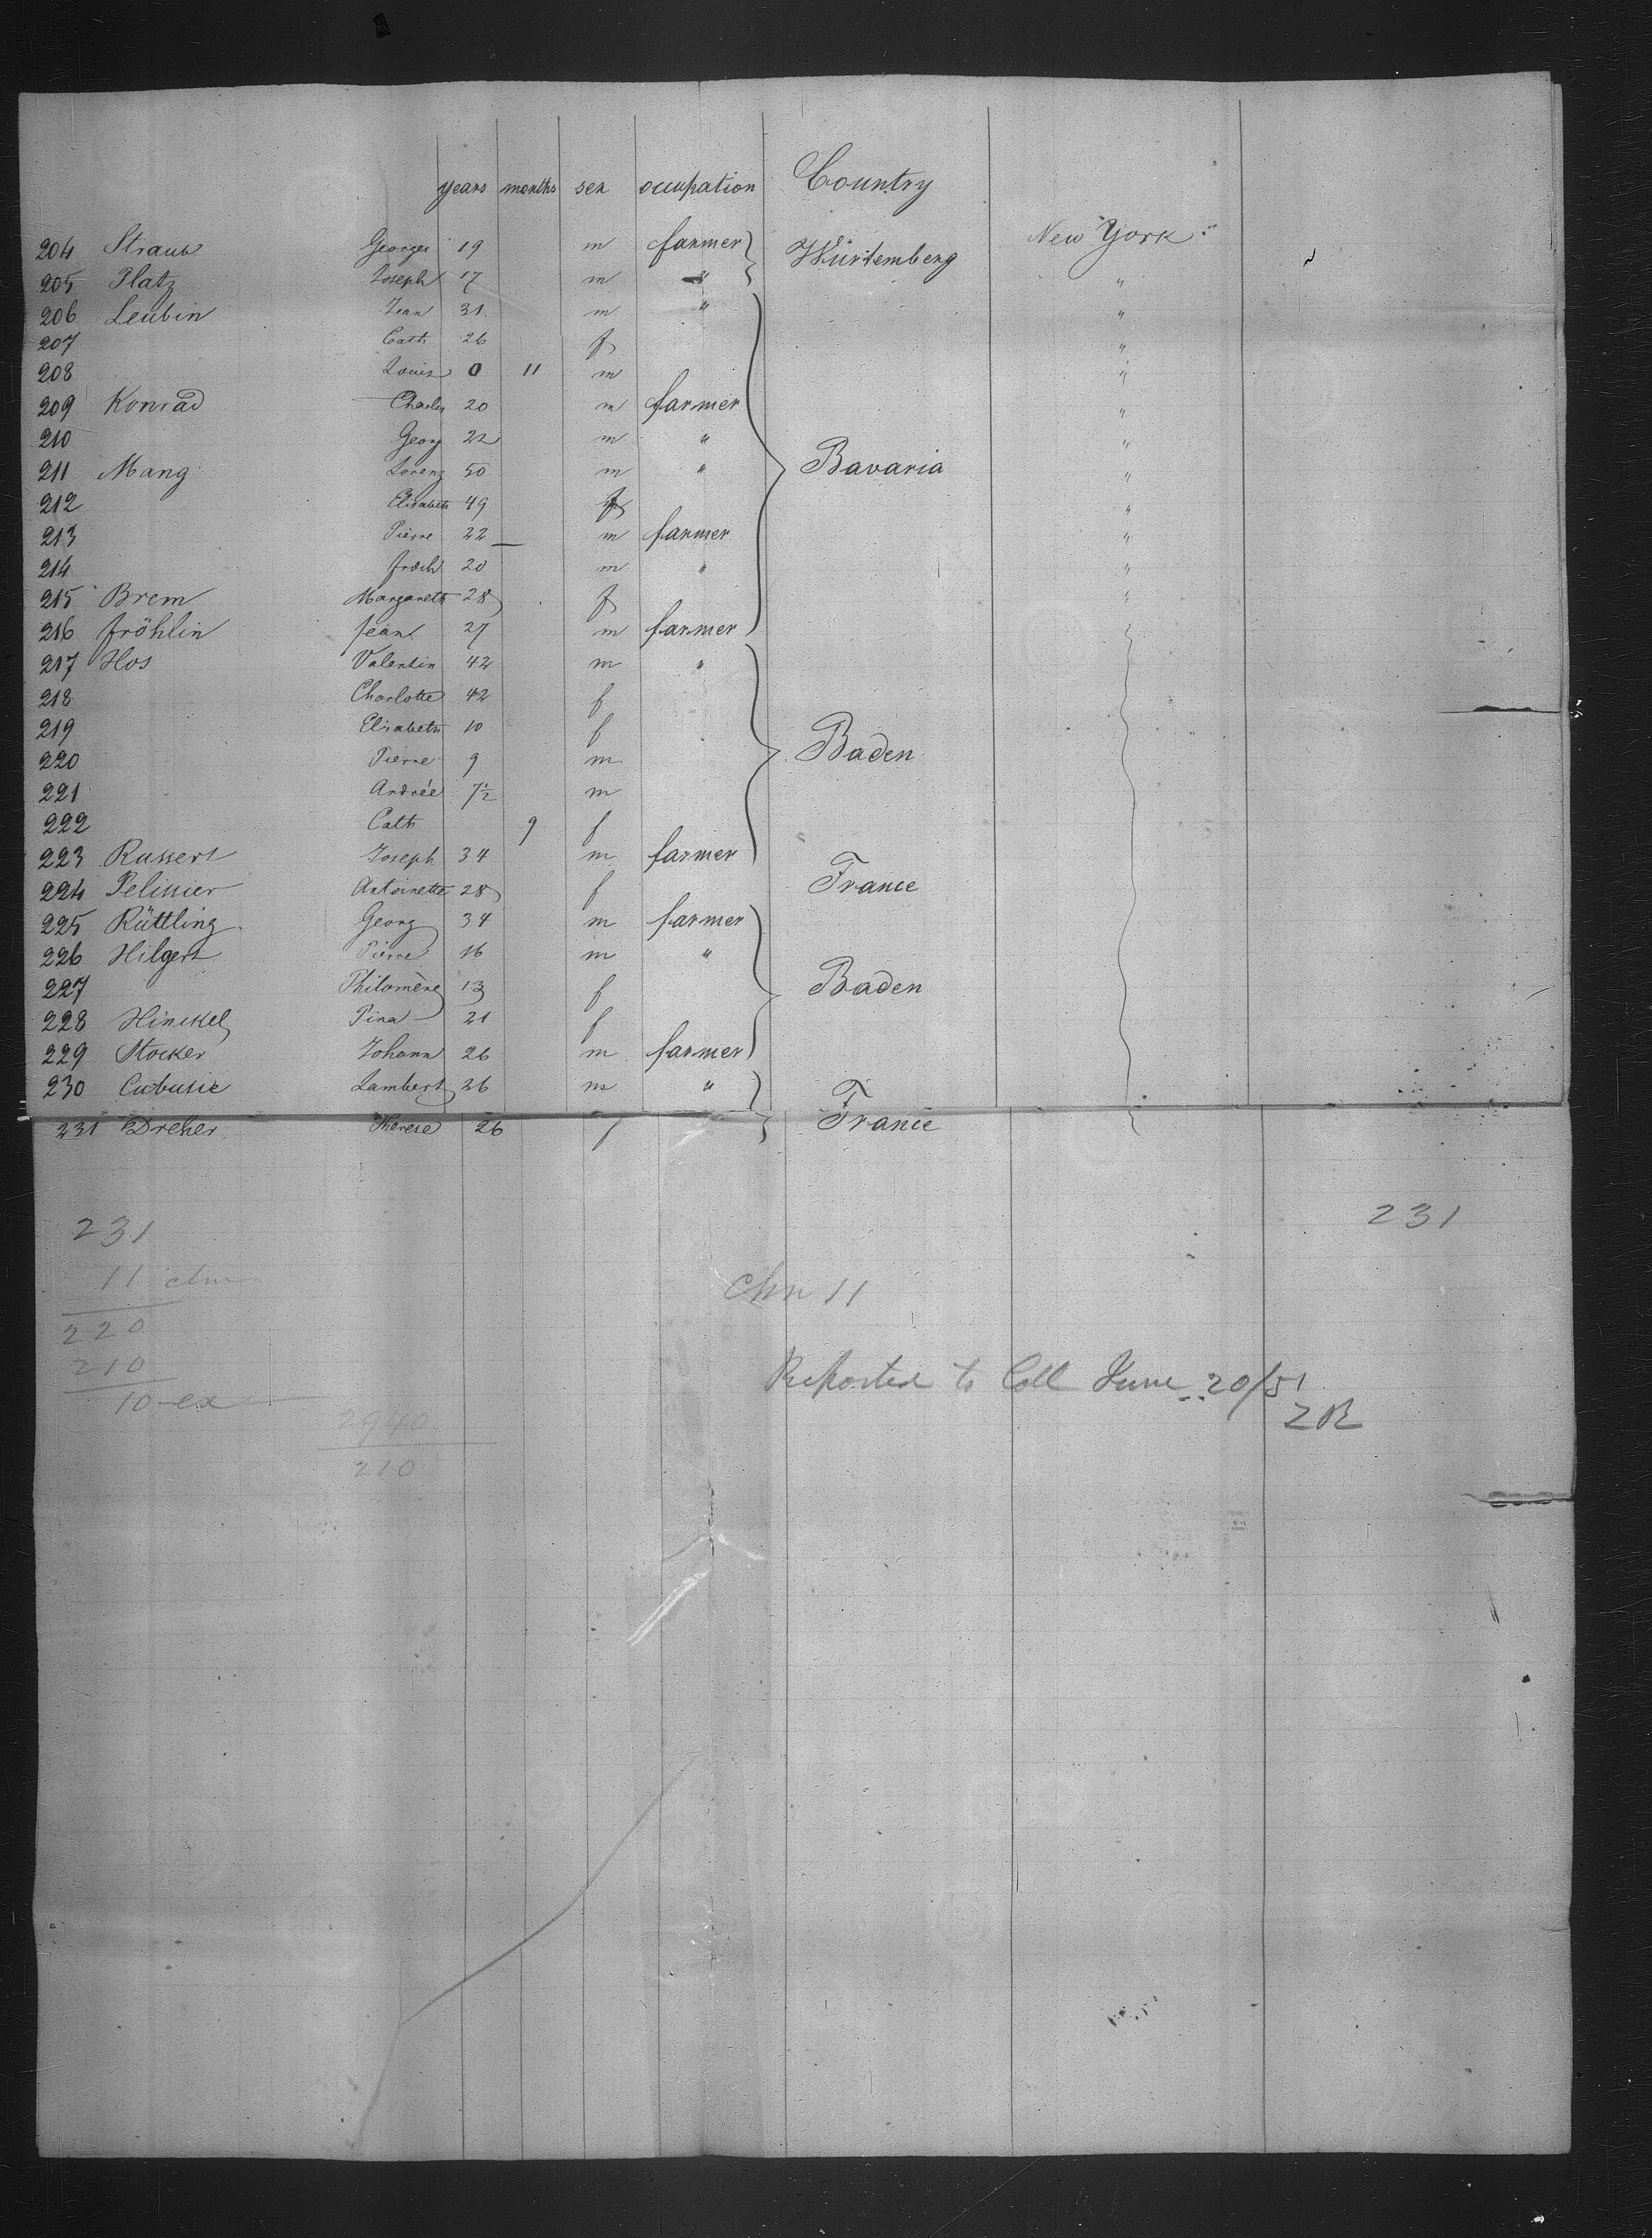 years months sex occupation Country
204 Straub Georges 19 m farmer Würtemberg New York
205 Platz Joseph 17 m " "
206 Leubin Jean 31 m " "
207 Cath 26 f "
208 Louis 0 11 m "
209 Konrad Charles 20 m farmer "
210 Georg 22 m " "
211 Mang Lorenz 50 m " Bavaria "
212 Elisabeth 49 f "
213 Pierre 22 m farmer "
214 20 m " "
215 Brem Margareth 28 f "
216 Fröhlin Jean 27 m farmer
217 Hos Valentin 42 m "
218 Charlotte 42 f
219 Elisabeth 10 f
220 Pierre 9 m Baden
221 Andrée 7½ m
222 Cath 9 f
223 Russert Joseph 34 m farmer
224 Pelissier Antoinette 28 f France
225 Rüttling Georg 34 m farmer
226 Hilgert Pierre 16 m "
227 Philomène 13 f Baden
228 Hinckel 21 f
229 Stocker Johann 26 m farmer
230 Cubusie Lambert 26 m "
231 Dreher Therese 26 f France
231 231
11 chn
chn 11
220
210
10 ex
Reported to Coll June 20/51
ZR
2940
210